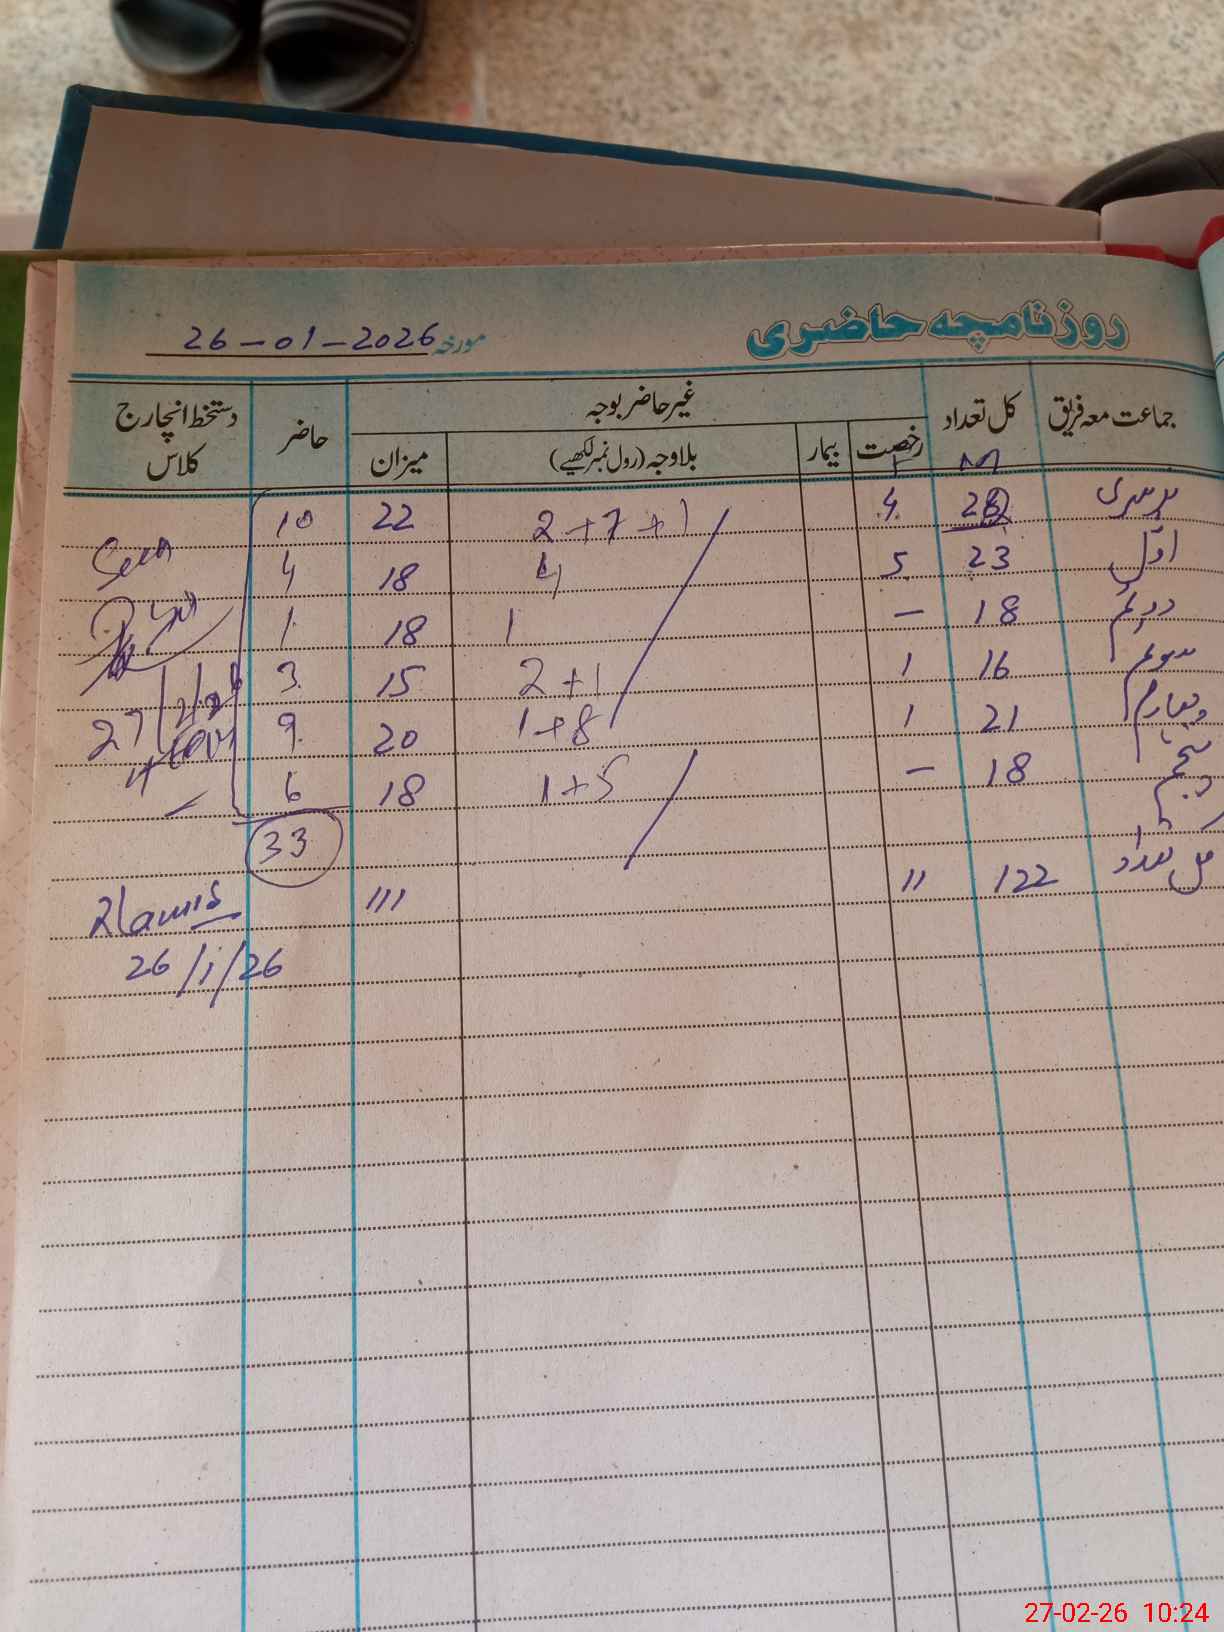 روزنامچہ حاضری
مورخہ 26-01-2026
جماعت معہ فریق کل تعداد غیر حاضر بوجہ حاضر دستخط انچارج کلاس
رخصت بیمار بلاوجہ (رول نمبر لکھیے) میزان
F M
4 2+7+1 22 10
اوّل 23 5 4 18 4
دوئم 18 – 1 18 1
سوئم 16 1 2+1 15 3
چہارم 21 1 1+8 20 9
پنجم 18 – 1+5 18 6
33
کل تعداد 122 11 111
26/1/26
27-02-26 10:24